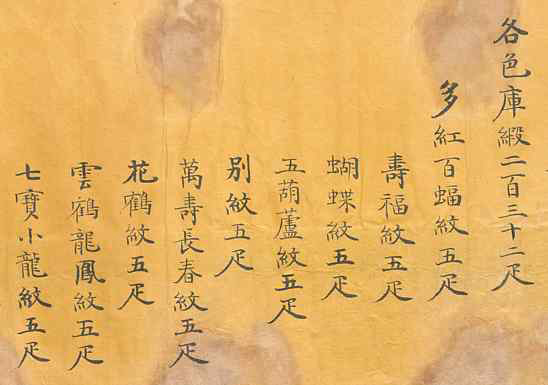 各色庫緞二百三十二疋
多紅百蝠紋五疋
壽福紋五疋
蝴蝶紋五疋
五葫蘆紋五疋
別紋五疋
萬壽長春紋五疋
花鶴紋五疋
雲鶴龍鳳紋五疋
七寶小龍紋五疋